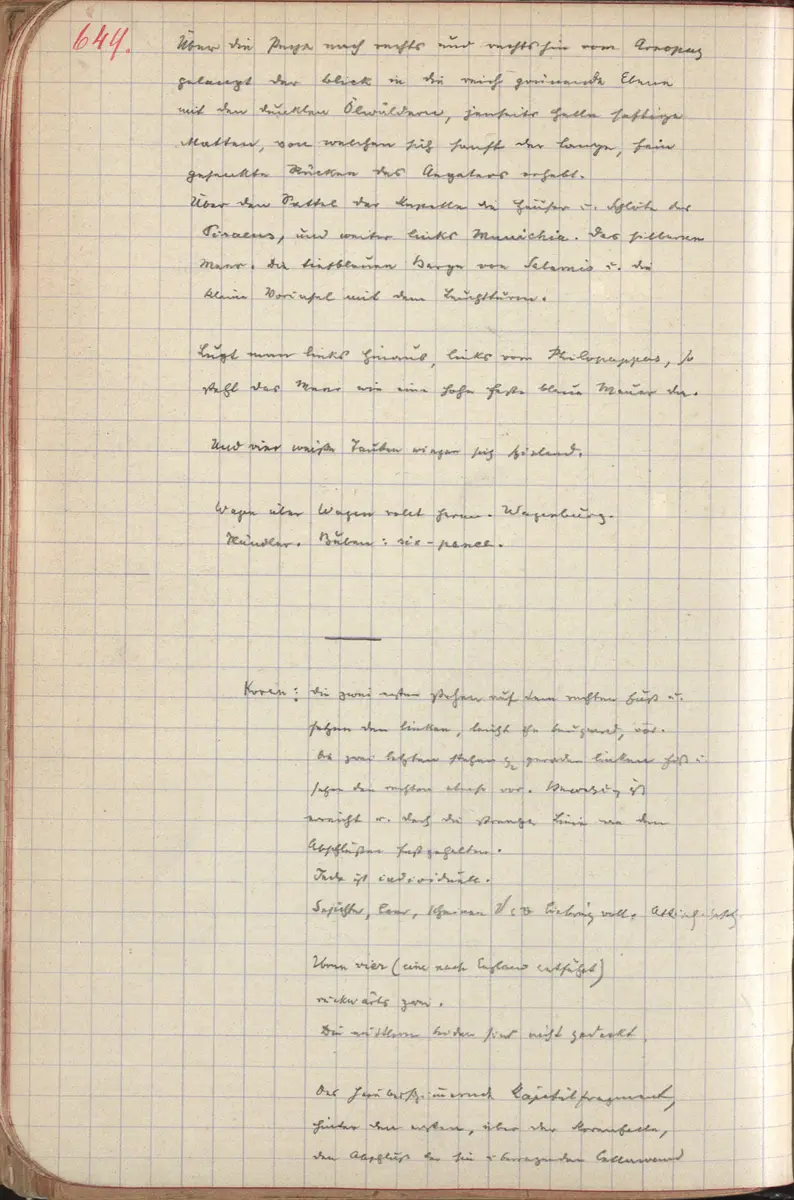 644.
Über die Pnyx nach rechts und rechtshin vom Areopag
gelangt der Blick in die reich grünende Ebene
mit den dunklen Ölwäldern, jenseits helle saftige
Matten, von welchen sich sanft der lange, fein
gesenkte Rücken des Aegaleos erhebt.
Über den Sattel der Kapelle die Häuser u. Schlote des
Piraeus, und weiter links Munichia. Das silberne
Meer. Die tiefblauen Berge von Salamis u. die
kleine Vorinsel mit dem Leuchtturm.
Lugt man links hinaus, links vom Philopappos, so
steht das Meer wie eine hohe feste blaue Mauer da.
Und vier weiße Tauben wiegen sich
Wagen über Wagen rollt heran. Wagenburg.
Händler. Buben: six-pence.
Koren: die zwei ersten stehen auf dem rechten Fuß u.
setzen den linken, leicht vor.
Die zwei letzten stehen geraden linken Fuß u.
setzen den rechten etwas vor. ist
erreicht u. doch die strenge Linie an den
Abschlüssen festgehalten.
Jede ist individuell.
Gesichter, leer, scheinen voll.
Vorn vier (eine nach England entführt)
rückwärts zwei.
Die mittleren beiden sind nicht gedeckt.
Das Kapitilfragment,
hinter den ersten, über der
den Abschluß der hin überragenden Cellawand